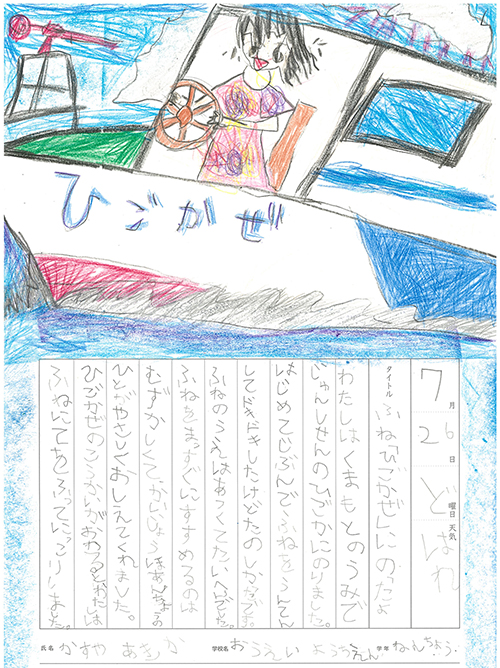 ひごかぜ
7月
26日
ど曜日 天気 はれ
タイトル ふねひごかぜににのったよ
わたしはくまもとのうみで
じゅんしせんのひごかにのりました。
はじめてじぶんでふねをうんてん
してドキドキしたけどたのしかたです。
ふねのうえはあつくてたいへんでした。
ふねをまっすぐにすすめるのは
むずかしくて、かいじょうほあんちょうの
ひとがやさしくおしえてくれました。
ひごかぜのこうかいがおわるとわたしは
ふねにてをふってにっこりしました。
氏名 かすや あきか 学校名 おうえいようちえん 学年 ねんちょう.